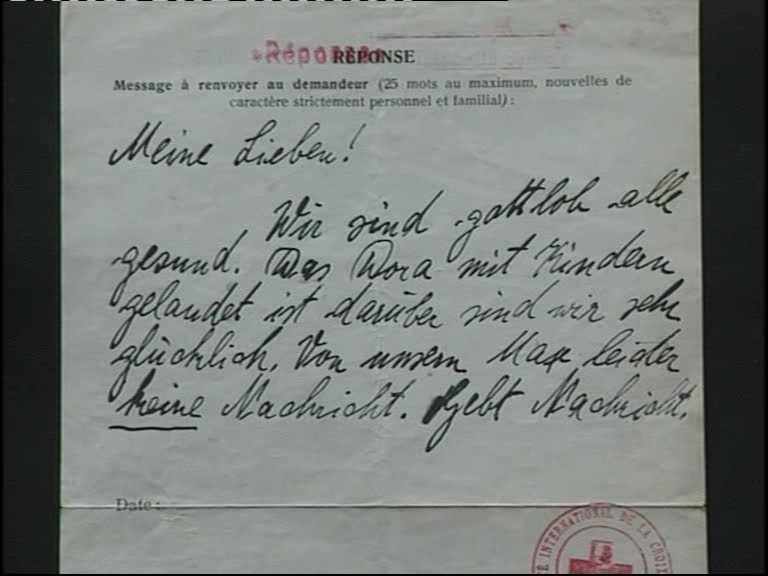 Réponse
RÉPONSE
Message à renvoyer au demandeur (25 mots au maximum, nouvelles de
caractère strictement personnel et familial) :
Meine Lieben!
Wir sind gottlob alle
gesund. Das Dora mit Kindern
gelandet ist darüber sind wir sehr
glücklich. Von unserm Max leider
keine Nachricht. Gebt Nachricht.
Date :
INTERNATIONAL DE LA CROIX